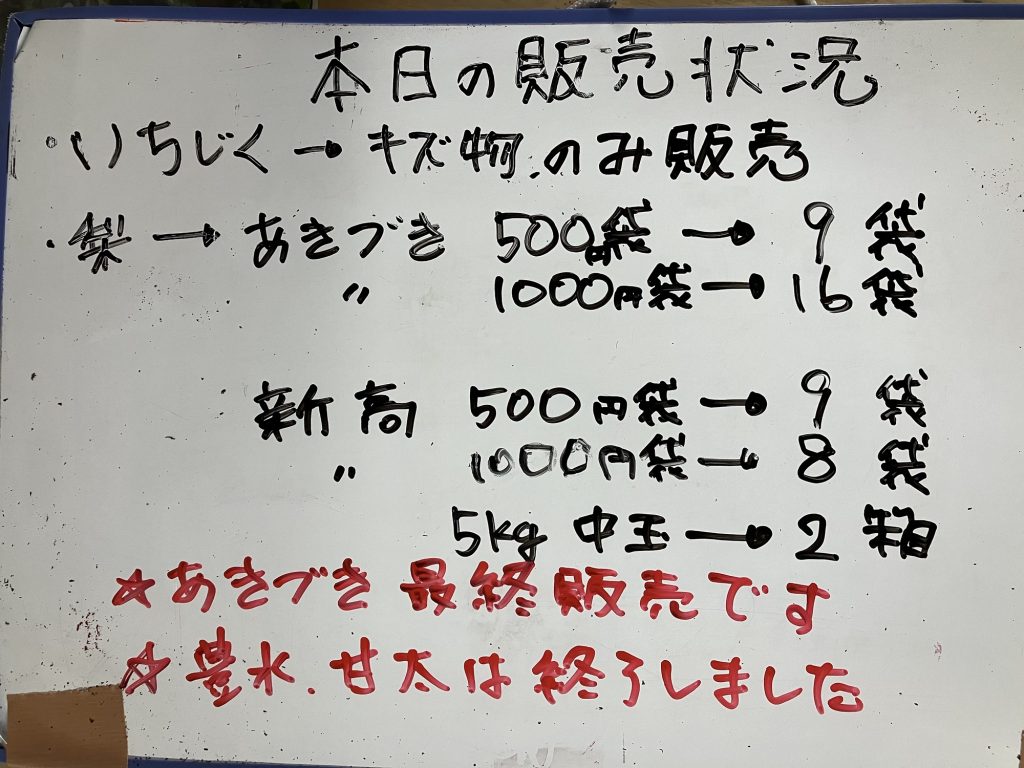 本日の販売状況
・いちじく→キズ物.のみ販売
・梨→あきづき 500円袋→9袋
〃 1000円袋→16袋
新高 500円袋→9袋
〃 1000円袋→8袋
5kg 中玉→2箱
☆あきづき最終販売です
☆豊水.甘太は終了しました